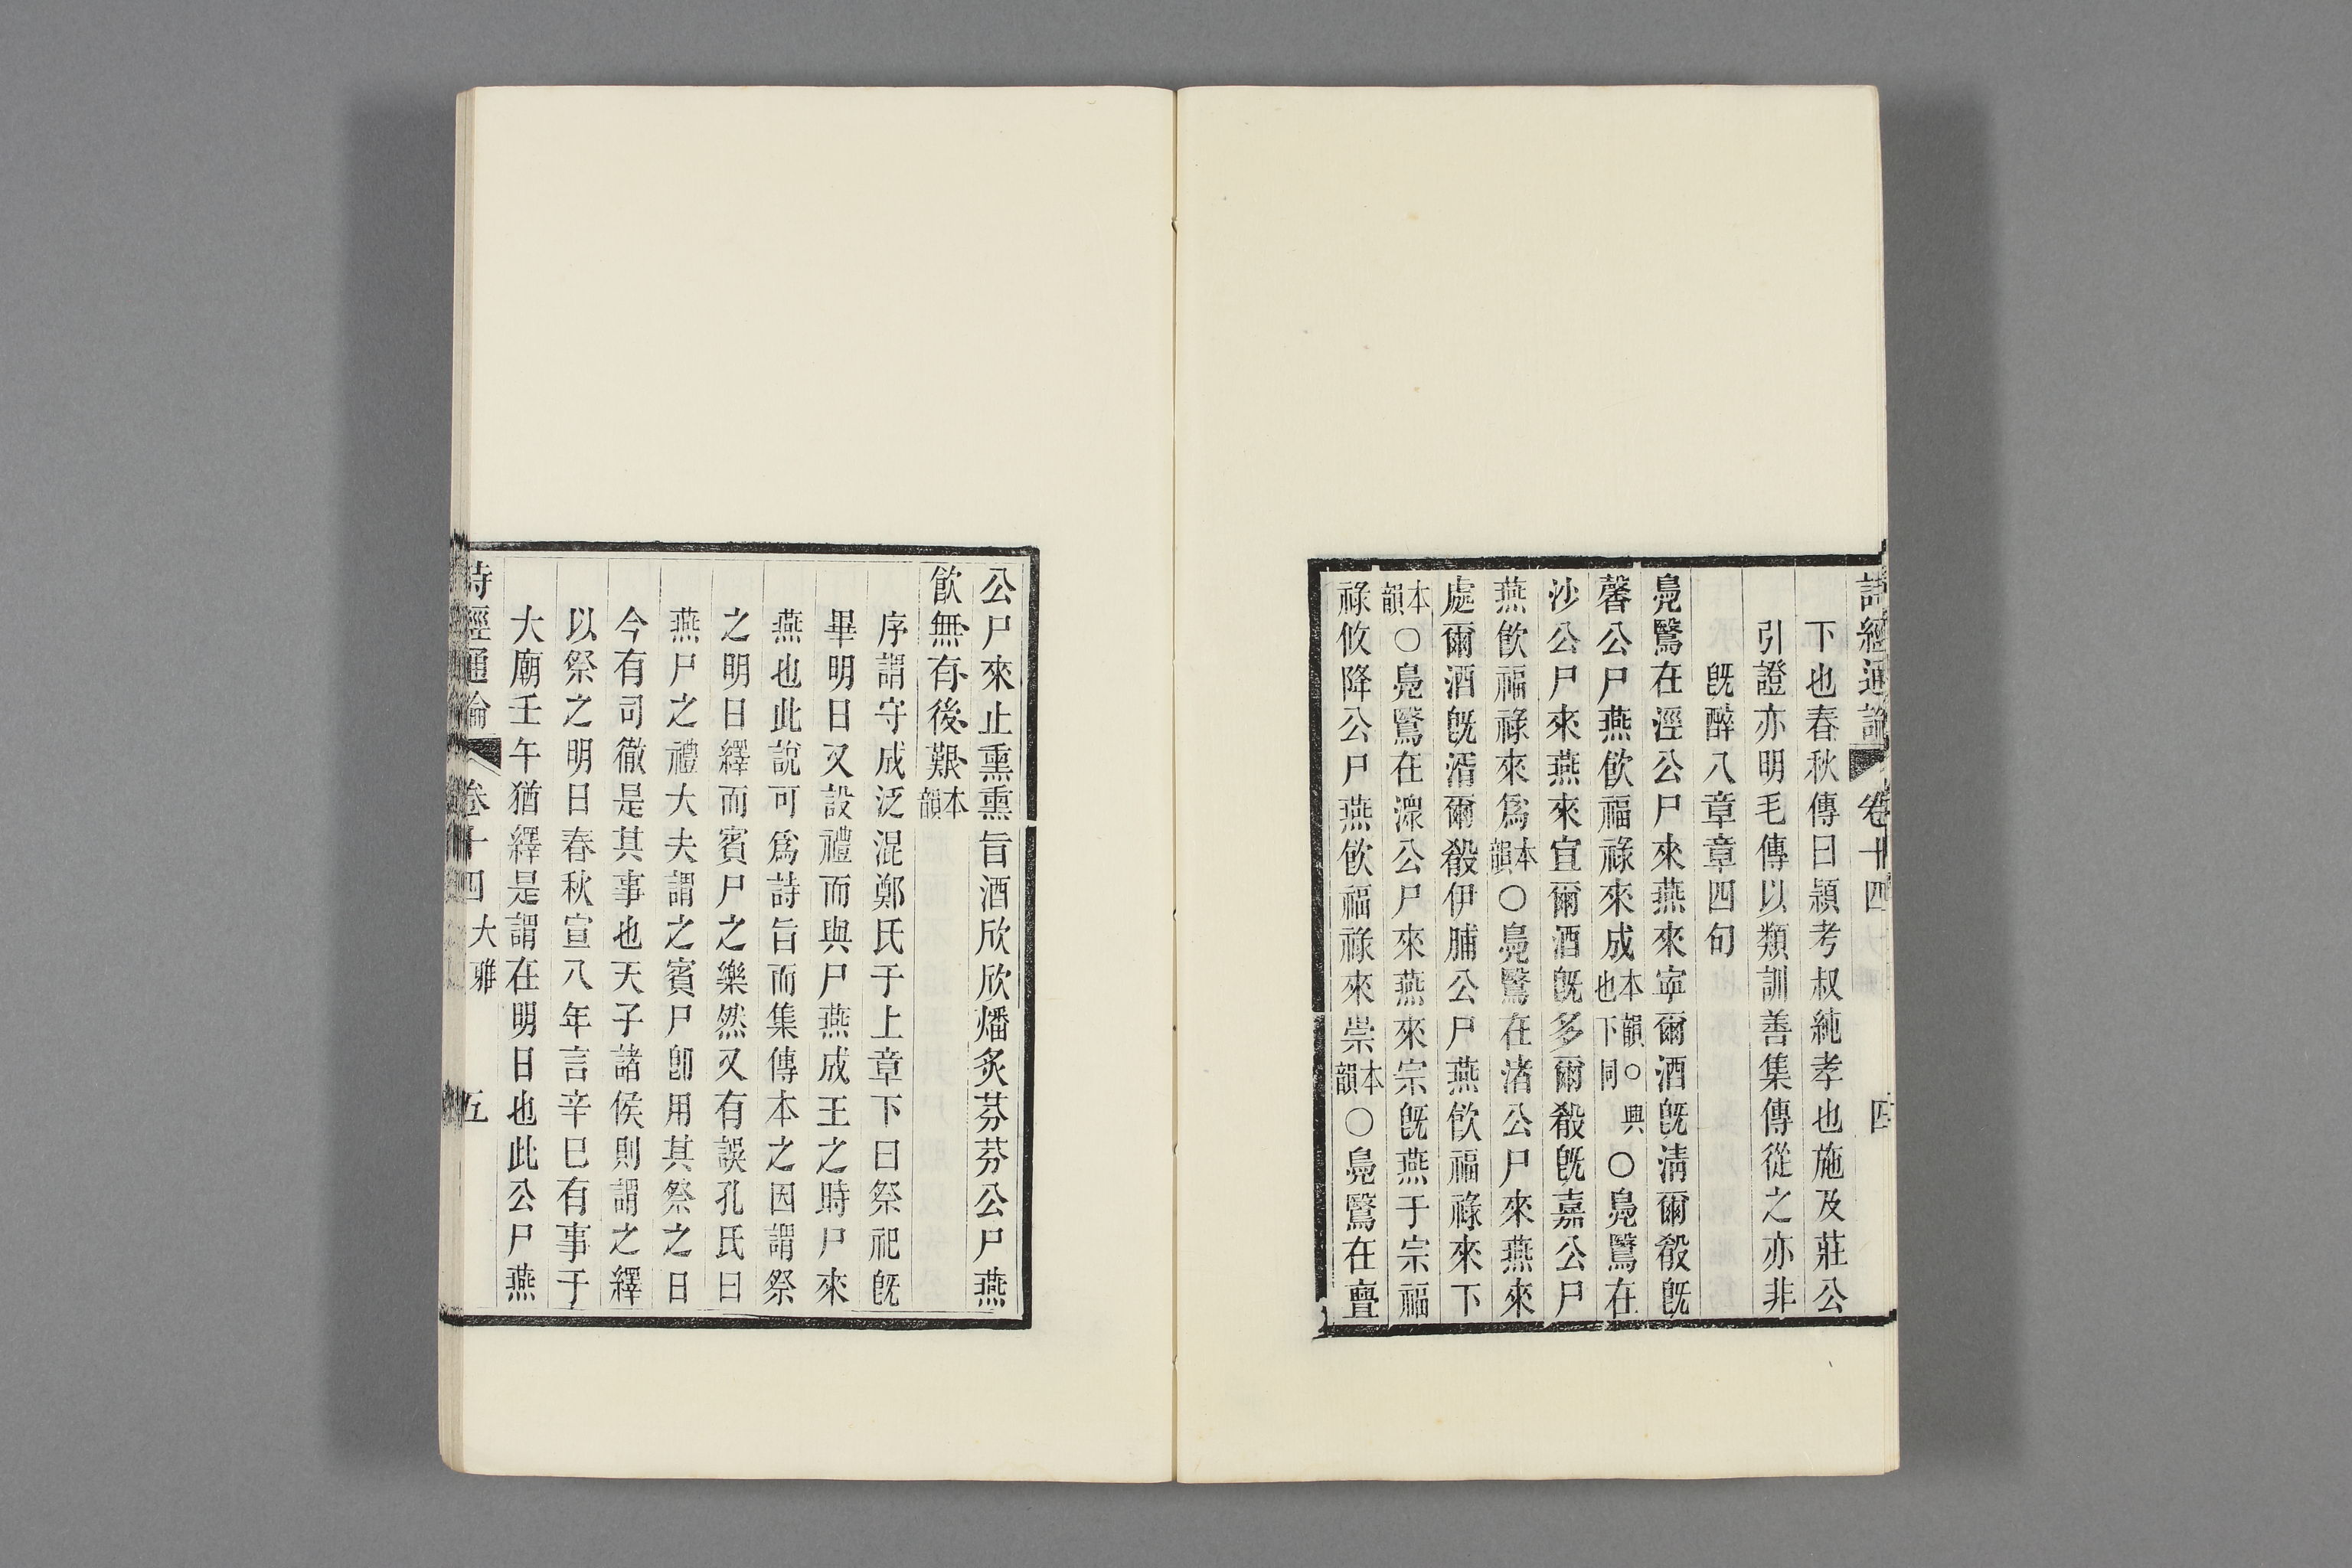 詩經通論 卷十四 四
下也春秋傳曰潁考叔純孝也施及莊公
引證亦明毛傳以類訓善集傳從之亦非
既醉八章章四句
鳧鷖在涇公尸來燕來寧爾酒既清爾殽既
馨公尸燕飲福祿來成本韻○興也下同○鳧鷖在
沙公尸來燕來宜爾酒既多爾殽既嘉公尸
燕飲福祿來爲本韻○鳧鷖在渚公尸來燕來
處爾酒既湑爾殽伊脯公尸燕飲福祿來下
本韻○鳧鷖在潀公尸來燕來宗既燕于宗福
祿攸降公尸燕飲福祿來崇本韻○鳧鷖在亹
公尸來止熏熏旨酒欣欣燔炙芬芬公尸燕
飲無有後艱本韻
序謂守成泛混鄭氏于上章下曰祭祀既
畢明日又設禮而與尸燕成王之時尸來
燕也此說可爲詩旨而集傳本之因謂祭
之明日繹而賓尸之樂然又有誤孔氏曰
燕尸之禮大夫謂之賓尸卽用其祭之日
今有司徹是其事也天子諸侯則謂之繹
以祭之明日春秋宣八年言辛巳有事于
大廟壬午猶繹是謂在明日也此公尸燕
詩經通論 卷十四 大雅 五